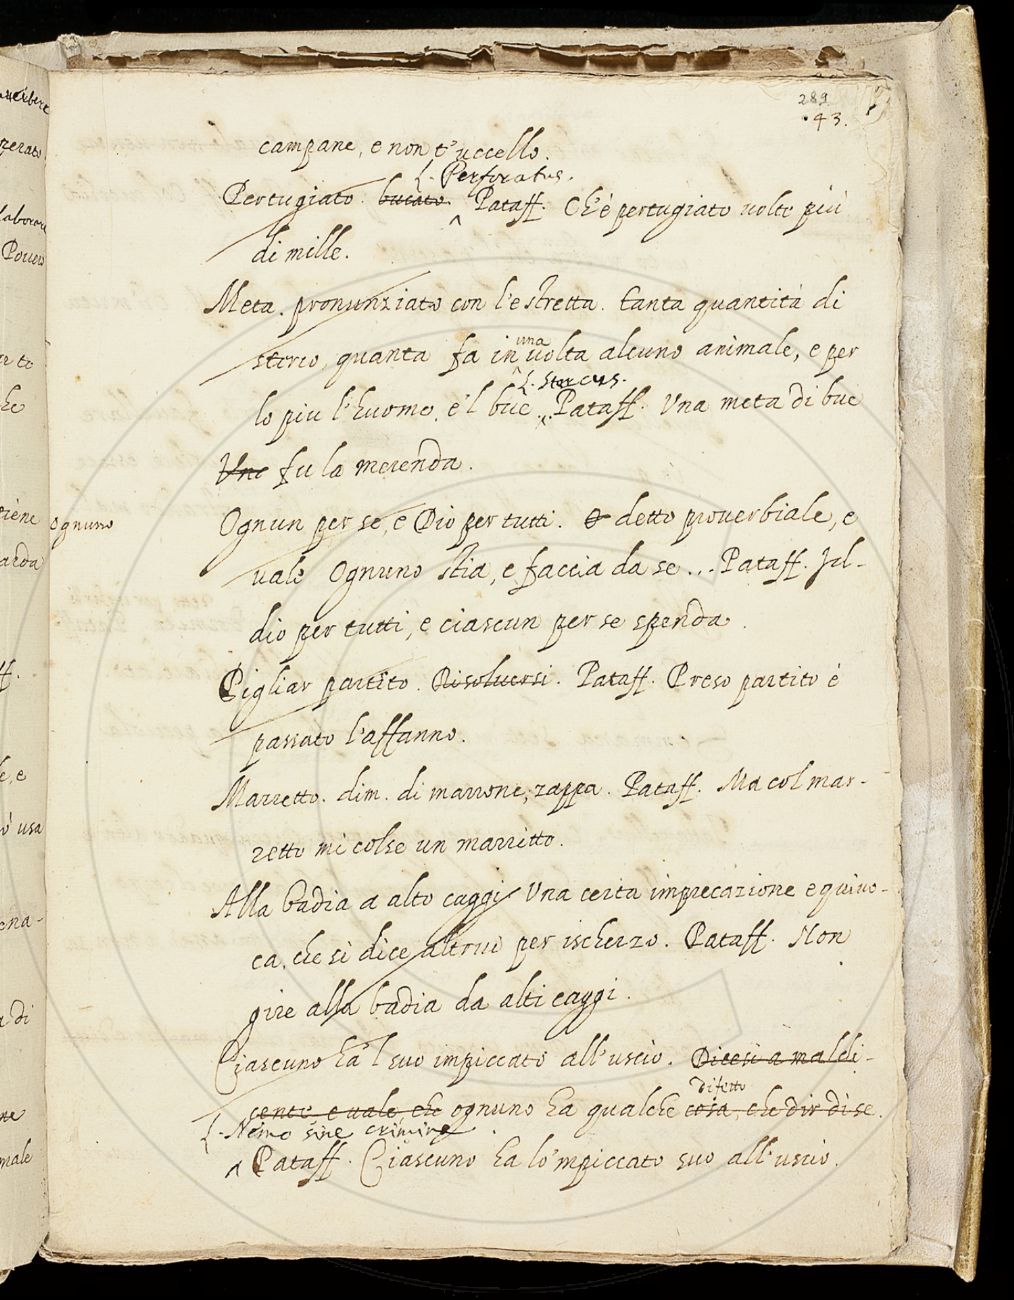 289
43.
campane, e non t'uccello.
L. Perforatus.
Pertugiato. bucato. Pataff. Ch'è pertugiato volte più
di mille.
Meta. pronunziato con l'e stretta. tanta quantità di
sterco, quanta fa in una volta alcuno animale, e per
L. stercus.
lo piu l'huomo, e'l bue. Pataff. Una meta di bue
Une fu la merenda.
Ognuno
Ognun per se, e Dio per tutti. È detto proverbiale, e
vale Ognuno stia, e faccia da se... Pataff. Jd-
dio per tutti, e ciascun per se spenda.
Pigliar partito. Risolversi. Pataff. Preso partito è
passato l'affanno.
Marretto. dim. di marrone, zappa. Pataff. Ma col mar-
retto mi colse un marritto.
Alla badia a alto caggi Una certa imprecazione equivo-
ca, che si dice altrui per ischerzo. Pataff. Non
gire alla badia da alti caggi.
Ciascuno ha 'l suo impiccato all'uscio. Dicesi a maldi-
difetto
cente e vale, che ognuno ha qualche cosa, che dir di se.
L. Nemo sine crimine.
Pataff. Ciascuno ha lo'mpiccato suo all'uscio.